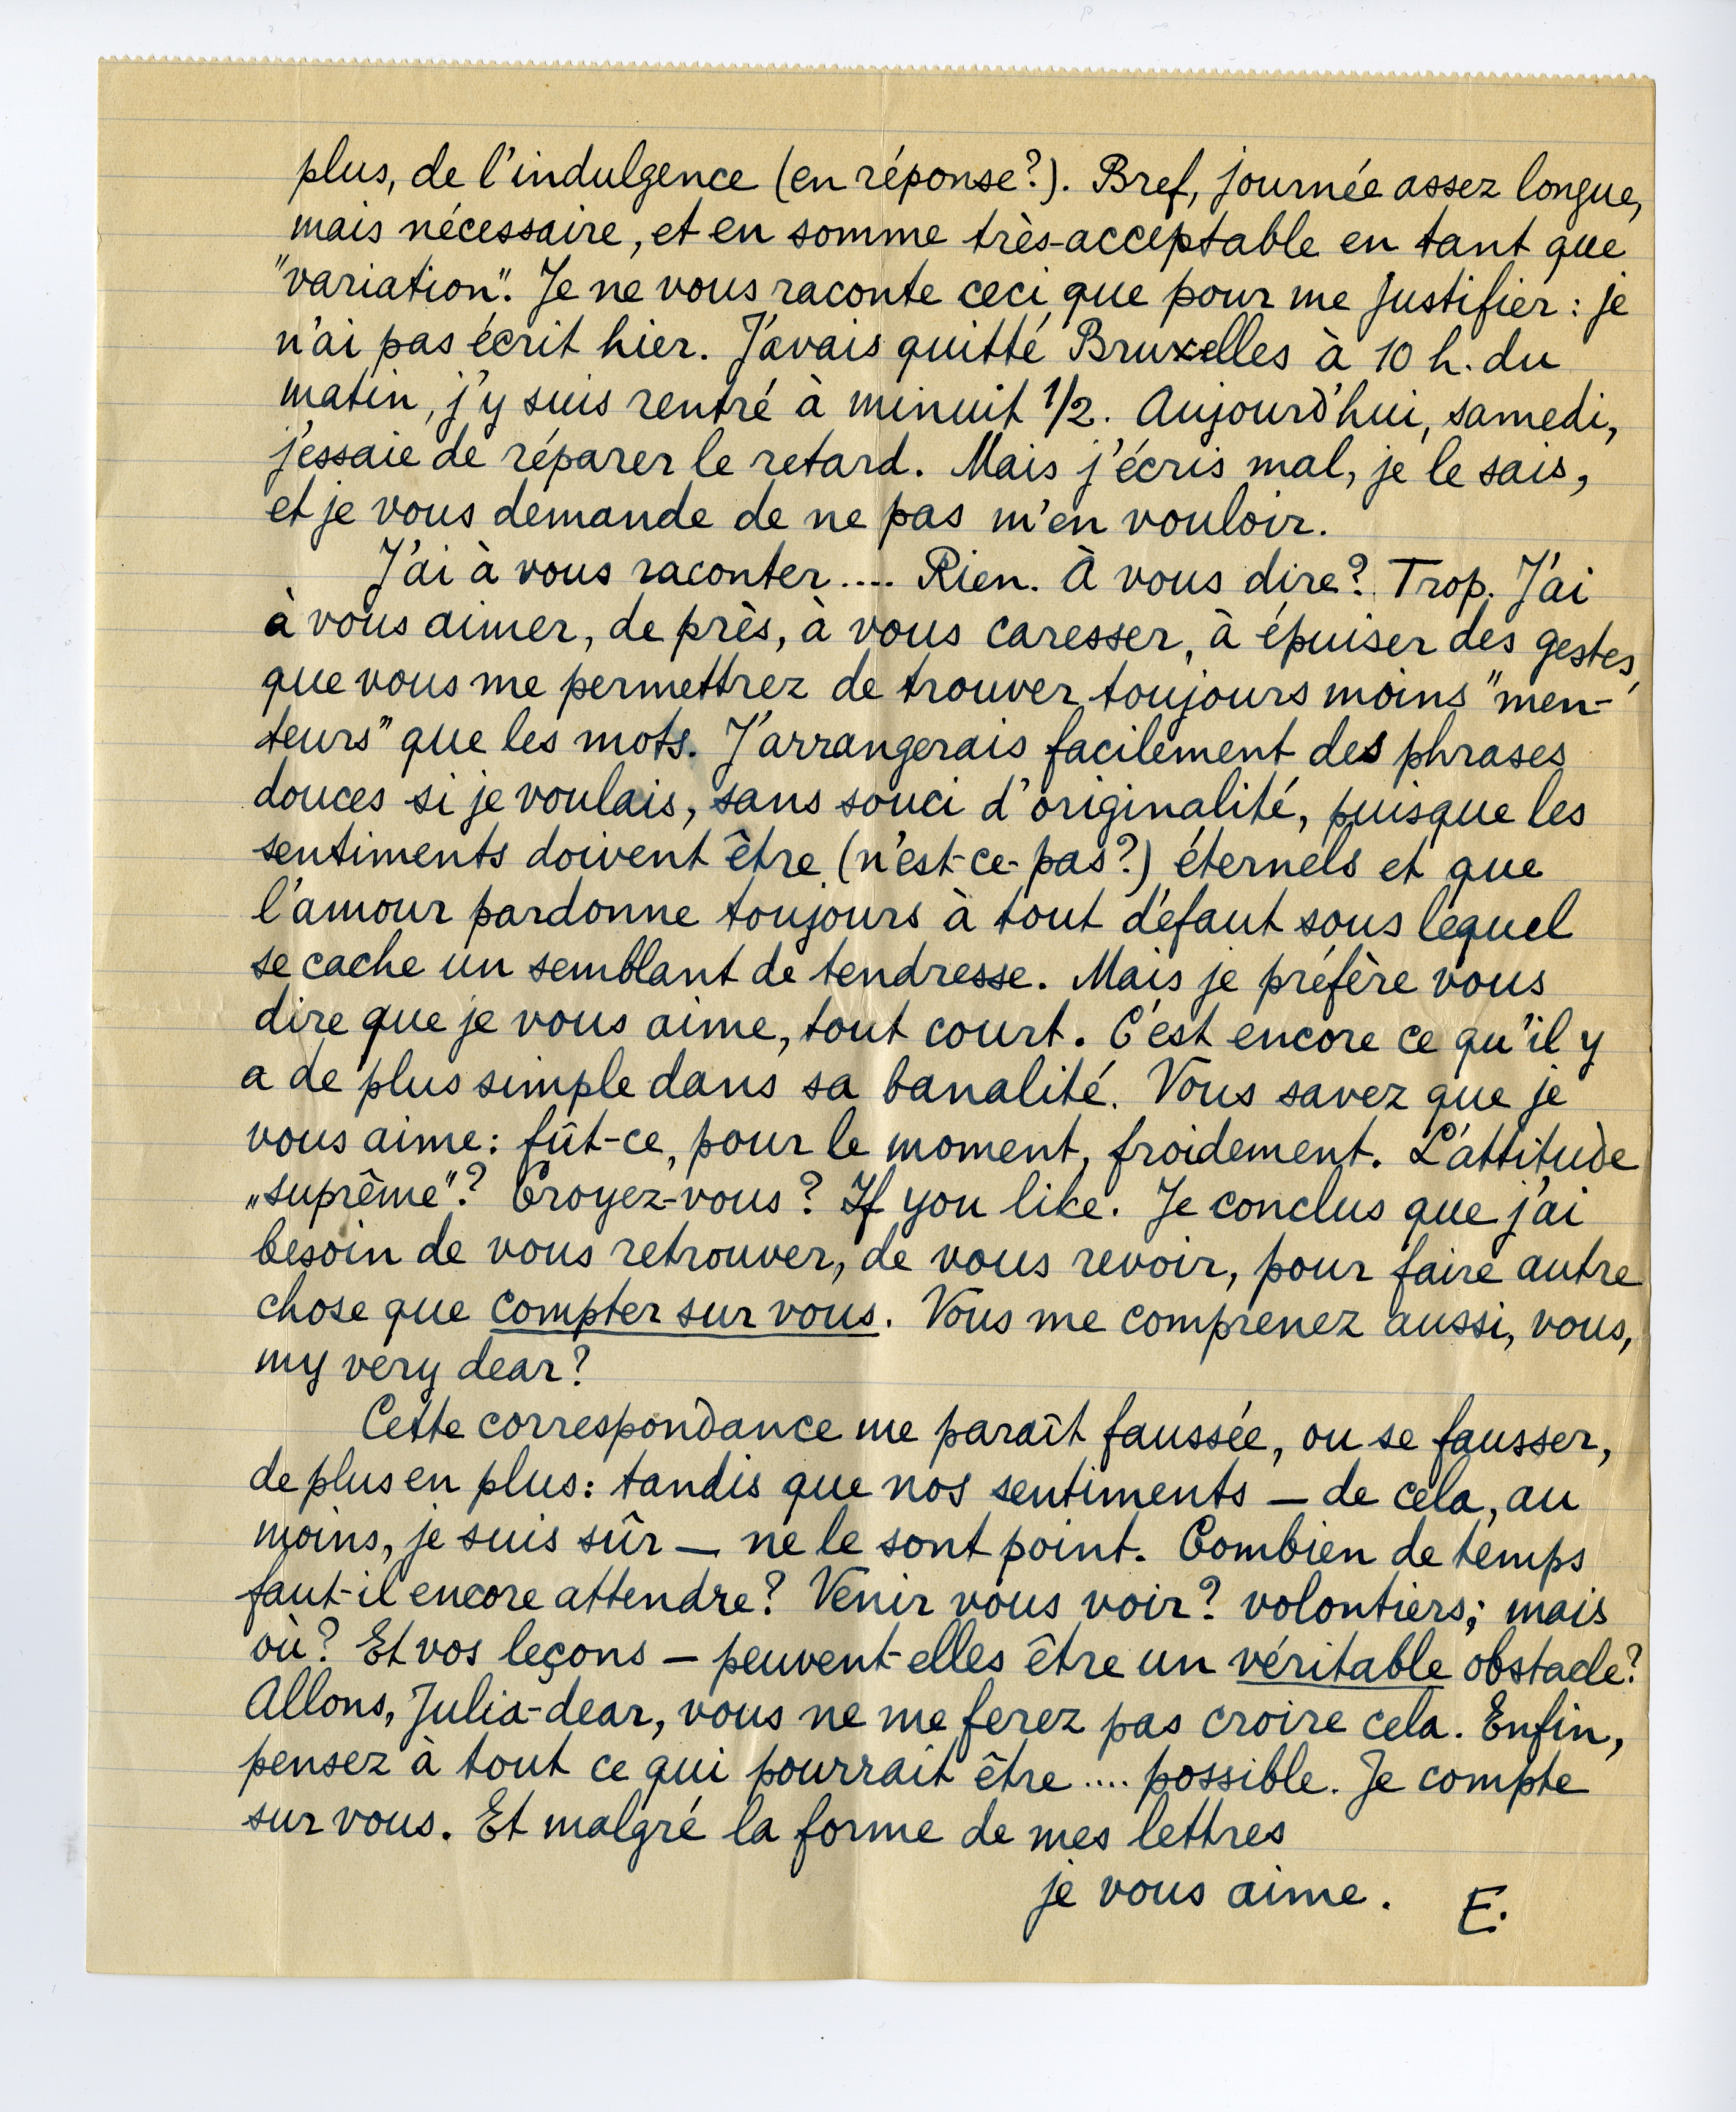 plus, de l'indulgence (en réponse?). Bref, journée assez longue,
mais nécessaire, et en somme très-acceptable en tant que
"variation". Je ne vous raconte ceci que pour me justifier : je
n'ai pas écrit hier. J'avais quitté Bruxelles à 10 h. du
matin, j'y suis rentré à minuit 1/2. Aujourd'hui, samedi,
j'essaie de réparer le retard. Mais j'écris mal, je le sais,
et je vous demande de ne pas m'en vouloir.
J'ai à vous raconter.... Rien. À vous dire? Trop. J'ai
à vous aimer, de près, à vous caresser, à épuiser des gestes
que vous me permettrez de trouver toujours moins "men-
teurs" que les mots. J'arrangerais facilement des phrases
douces si je voulais, sans souci d'originalité, puisque les
sentiments doivent être (n'est-ce-pas?) éternels et que
l'amour pardonne toujours à tout défaut sous lequel
se cache un semblant de tendresse. Mais je préfère vous
dire que je vous aime, tout court. C'est encore ce qu'il y
a de plus simple dans sa banalité. Vous savez que je
vous aime : fût-ce, pour le moment, froidement. L'attitude
„suprême"? Croyez-vous? If you like. Je conclus que j'ai
besoin de vous retrouver, de vous revoir, pour faire autre
chose que compter sur vous. Vous me comprenez aussi, vous,
my very dear?
Cette correspondance me paraît faussée, ou se fausser,
de plus en plus : tandis que nos sentiments — de cela, au
moins, je suis sûr — ne le sont point. Combien de temps
faut-il encore attendre? Venir vous voir? volontiers; mais
où? Et vos leçons — peuvent-elles être un véritable obstacle?
Allons, Julia-dear, vous ne me ferez pas croire cela. Enfin,
pensez à tout ce qui pourrait être .... possible. Je compte
sur vous. Et malgré la forme de mes lettres
je vous aime. E.